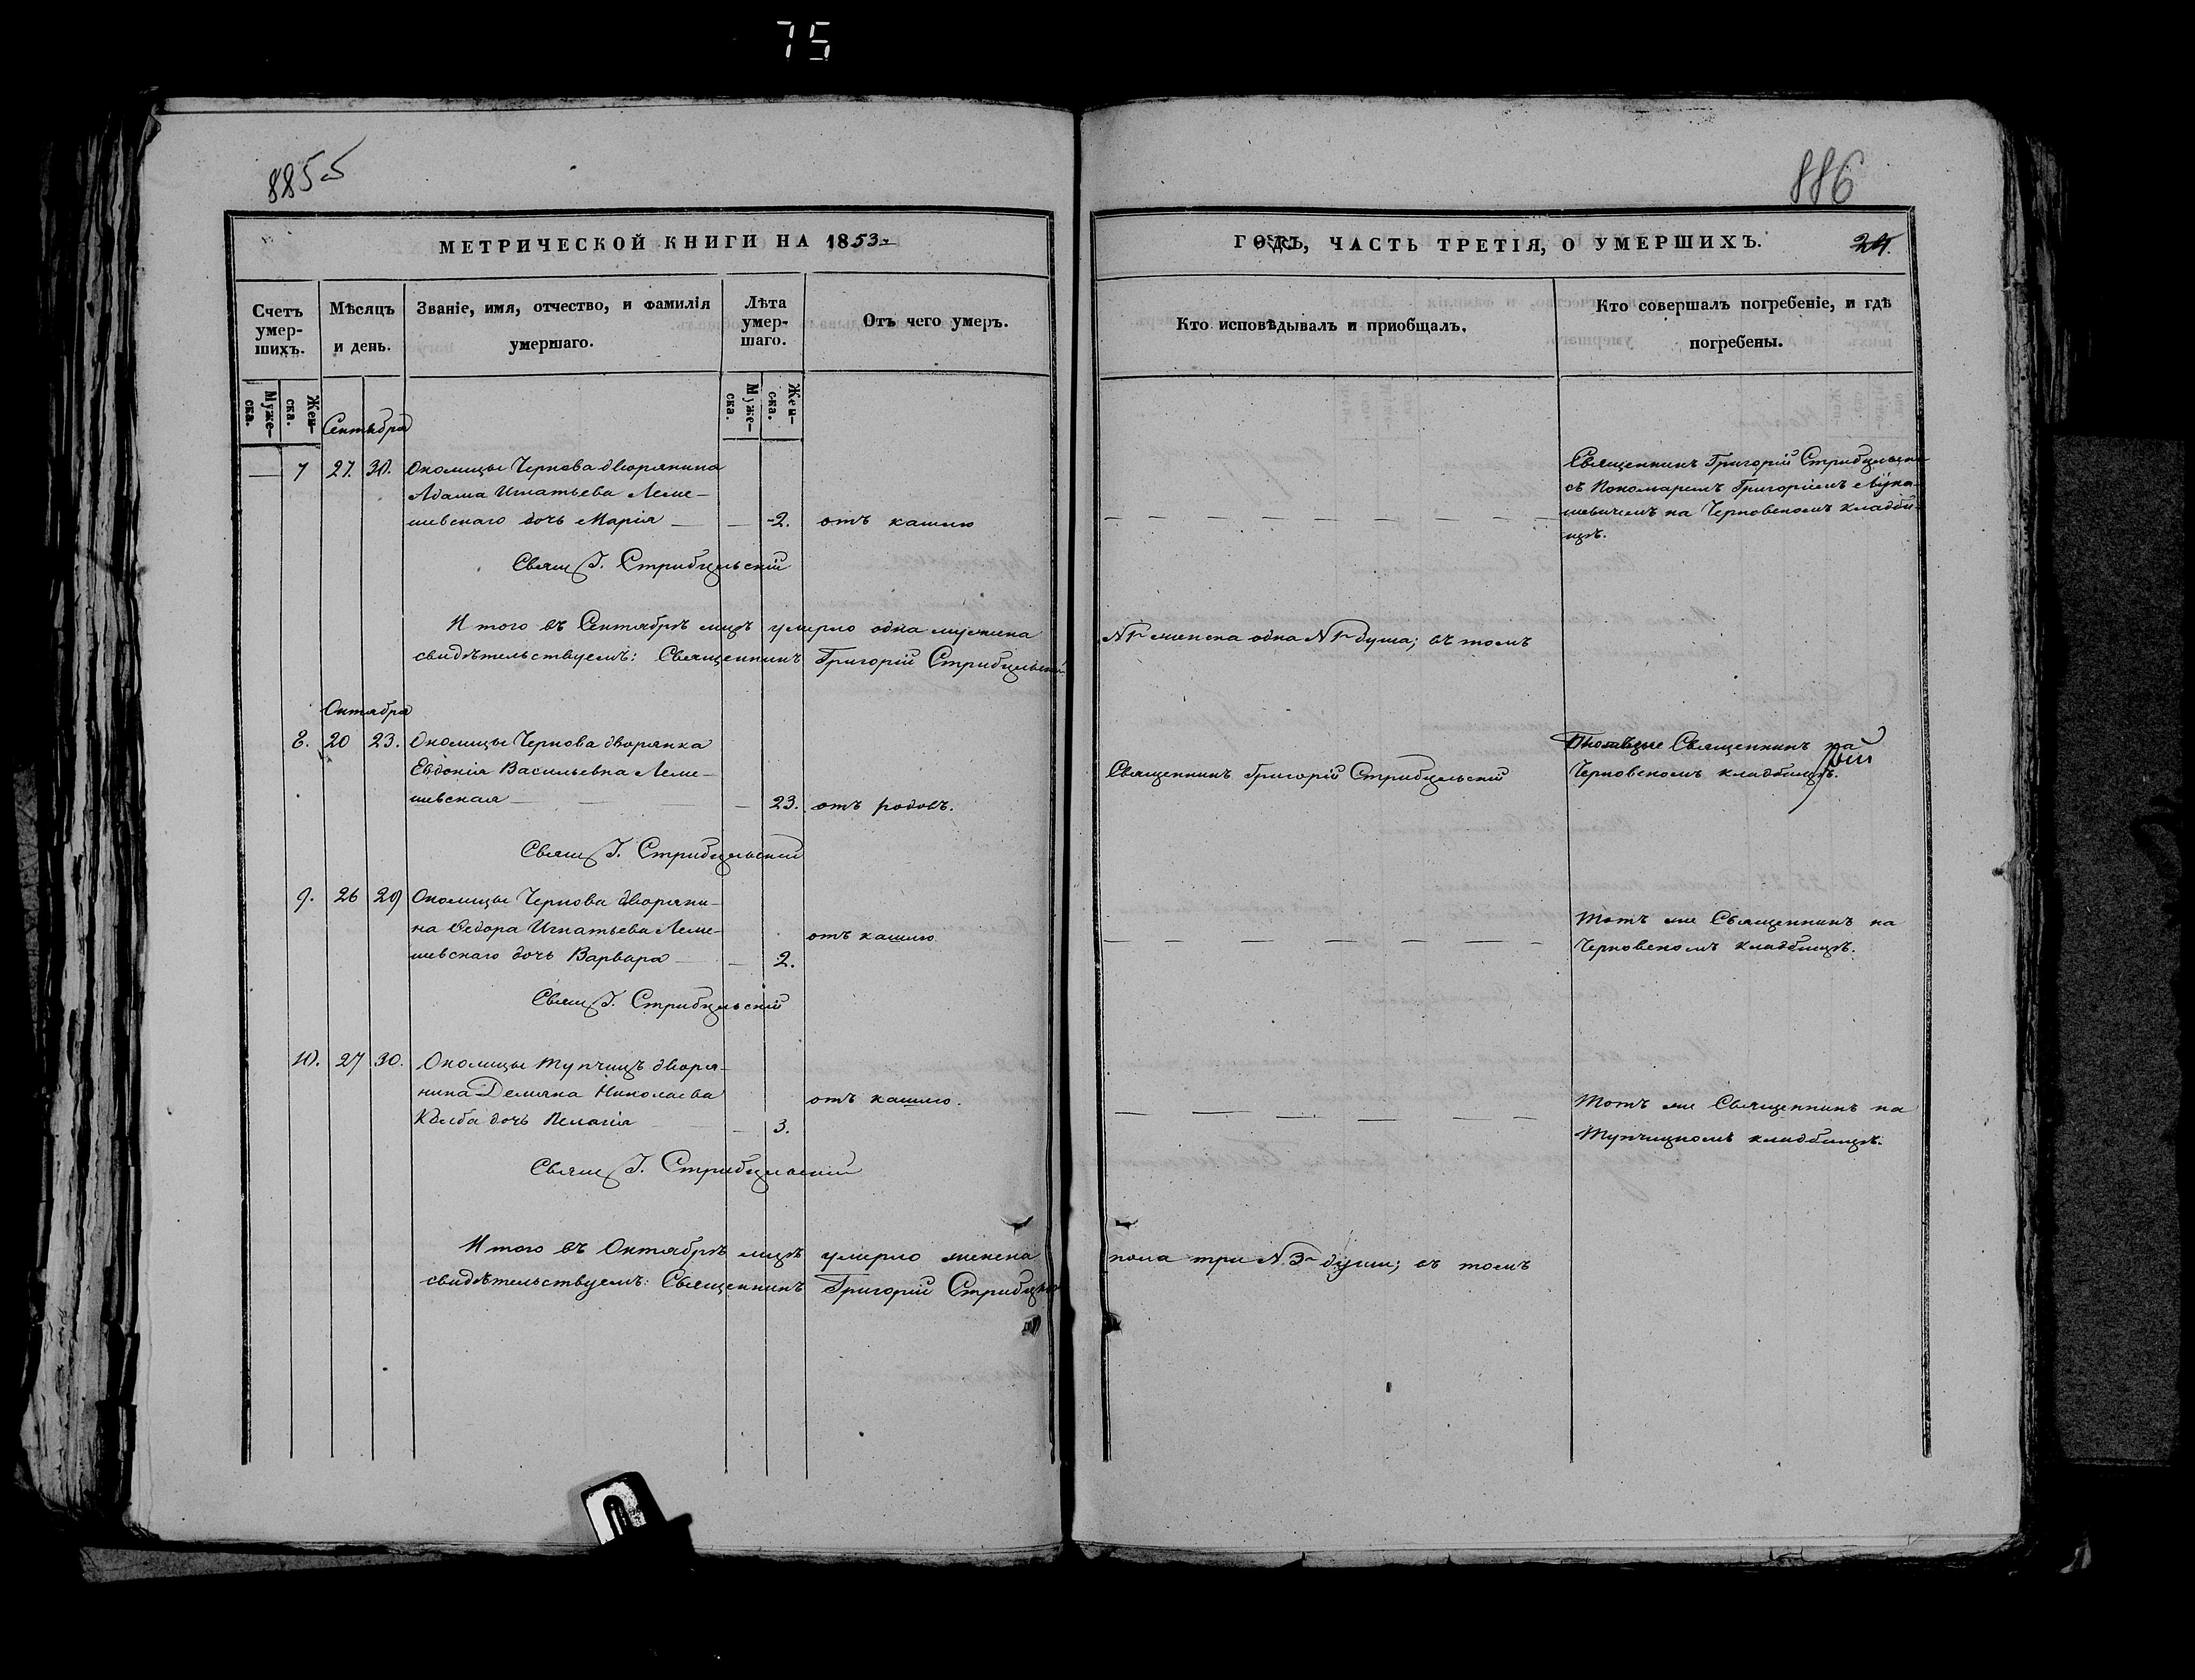 75
885
886
МЕТРИЧЕСКОЙ КНИГИ НА 1853
ГОДЪ, ЧАСТЬ ТРЕТІЯ, О УМЕРШИХЪ.
24.
Счетъ умер-
шихъ.
Мѣсяцъ
и день.
Званіе, имя, отчество, и фамилія
умершаго.
Лѣта
умер-
шаго.
Отъ чего умеръ.
Кто исповѣдывалъ и приобщалъ.
Кто совершалъ погребеніе, и гдѣ
погребены.
Муже-
ска.
Жен-
ска.
Муже-
ска.
Жен-
ска.
Сентября
7 27. 30. Околицы Чернова дворянина
Адама Игнатьева Леме-
шевскаго дочь Марія 2. отъ кашлю
Священникъ Григорій Стрибульскій
съ Пономаремъ Григоріемъ Лука-
шевичемъ на Черновскомъ кладби-
щѣ.
Свящ Г. Стрибульскій
И того въ Сентябрѣ мцѣ умерло одна мужеска
N 1 женска одна N 1 душа; въ томъ
свидѣтельствуемъ: Священникъ Григорій Стрибульскій
Октября
8. 20 23. Околицы Чернова дворянка
Евдокія Васильевна Леме-
шевская 23. отъ родовъ.
Священникъ Григорій Стрибульскій
Священникъ на
Черновскомъ кладбищѣ.
Свящ Г. Стрибульскій
9. 26 29 Околицы Чернова дворяни-
на Ѳедора Игнатьева Леме-
шевскаго дочь Варвара 2.
отъ кашлю
Тотъ же Священникъ на
Черновскомъ кладбищѣ.
Свящ Г. Стрибульскій
10. 27 30. Околицы Тупчицъ дворя-
нина Демьяна Николаева
Колба дочь Пелагія 3.
отъ кашлю.
Тотъ же Священникъ на
Тупчицкомъ кладбищѣ.
Свящ Г. Стрибульскій
И того въ Октябрѣ мцѣ умерло женска
пола три N 3 души; въ томъ
свидѣтельствуемъ: Священникъ Григорій